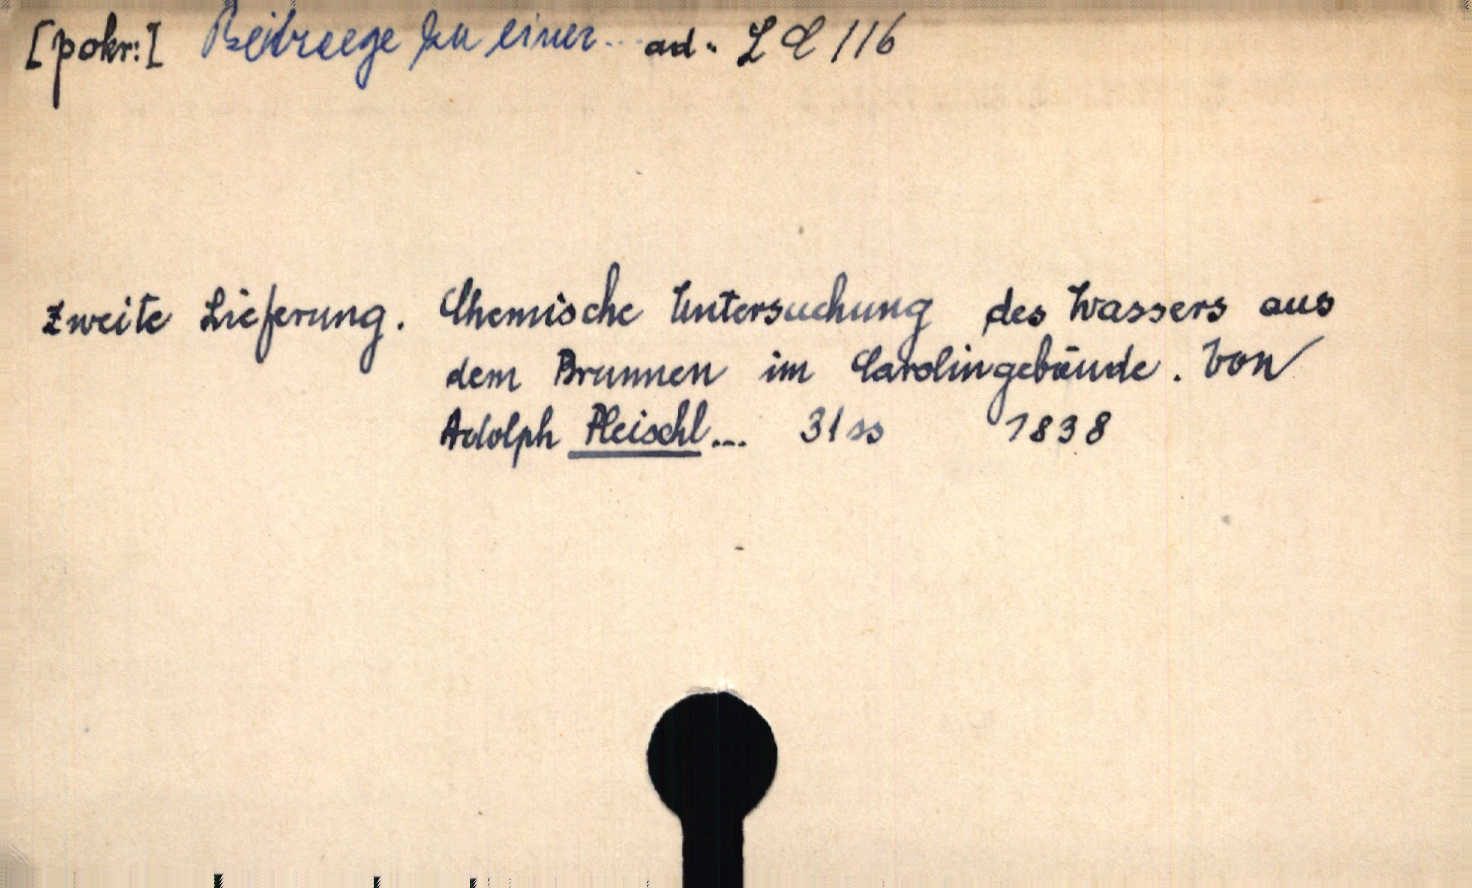 [pokr:] Beitraege zu einer... ad. L C 116
Zweite Lieferung. Chemische Untersuchung des Wassers aus
dem Brunnen im Carolingebäude. Von
Adolph Pleischl... 31 ss 1838